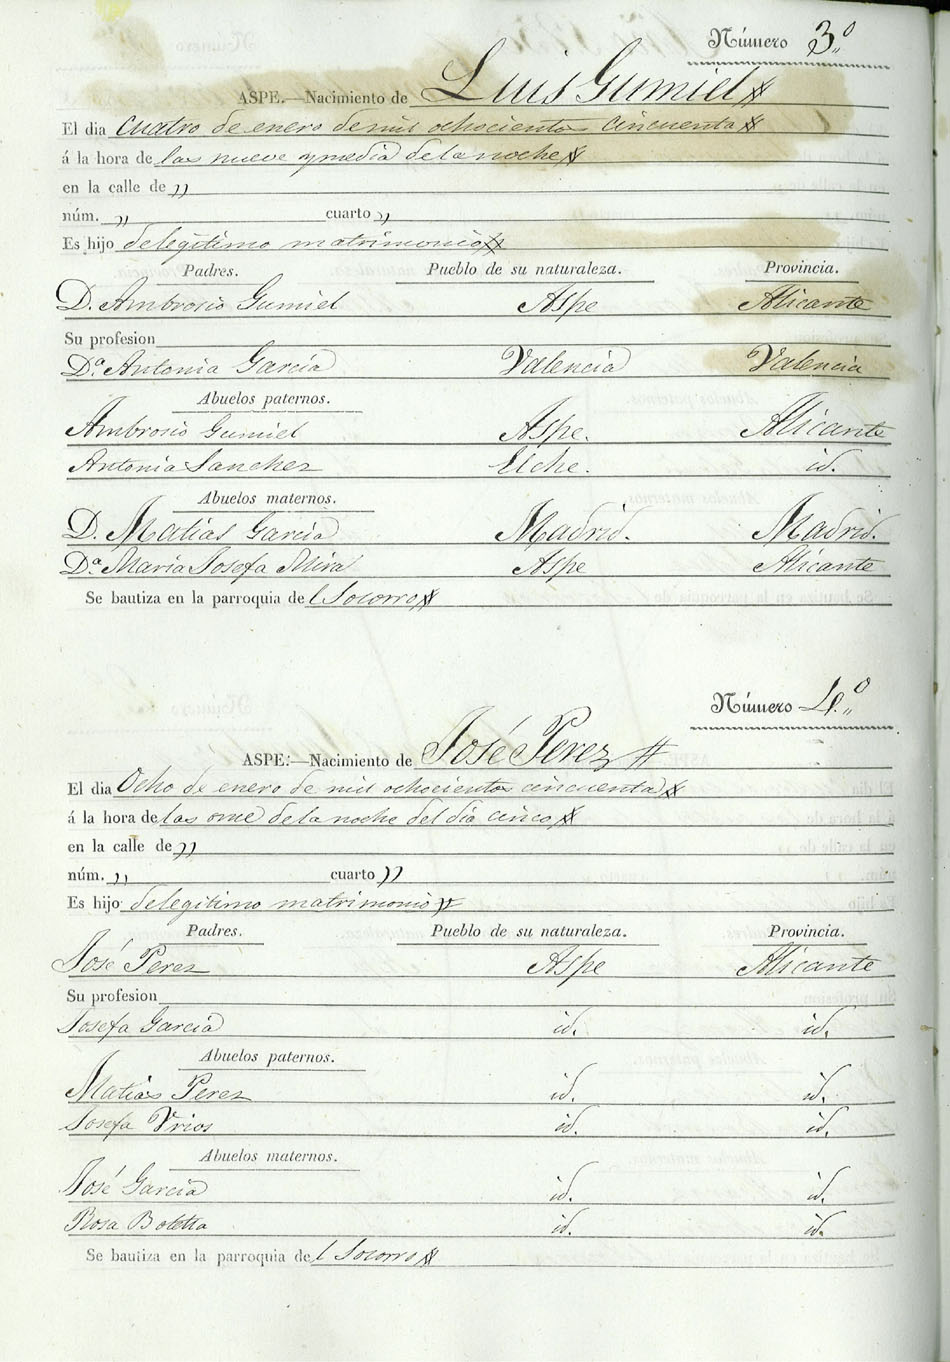 Número 3.º
ASPE.—Nacimiento de Luis Gumiel
El dia cuatro de enero de mil ochocientos cincuenta
á la hora de las nueve y media de la noche
en la calle de „
núm. „ cuarto „
Es hijo de legitimo matrimonio
Padres. Pueblo de su naturaleza. Provincia.
D. Ambrosio Gumiel Aspe Alicante
Su profesion
D.ª Antonia García Valencia Valencia
Abuelos paternos.
Ambrosio Gumiel Aspe. Alicante
Antonia Sanchez Elche. id.
Abuelos maternos.
D. Matías García Madrid. Madrid.
D.ª María Josefa Mira Aspe Alicante
Se bautiza en la parroquia del Socorro
Número 4.º
ASPE.—Nacimiento de José Perez
El dia Ocho de enero de mil ochocientos cincuenta
á la hora de las once de la noche del día cinco
en la calle de „
núm. „ cuarto „
Es hijo de legitimo matrimonio
Padres. Pueblo de su naturaleza. Provincia.
José Perez Aspe Alicante
Su profesion
Josefa García id. id.
Abuelos paternos.
Matías Perez id. id.
Josefa Vrios id. id.
Abuelos maternos.
José García id. id.
Rosa Botella id. id.
Se bautiza en la parroquia del Socorro